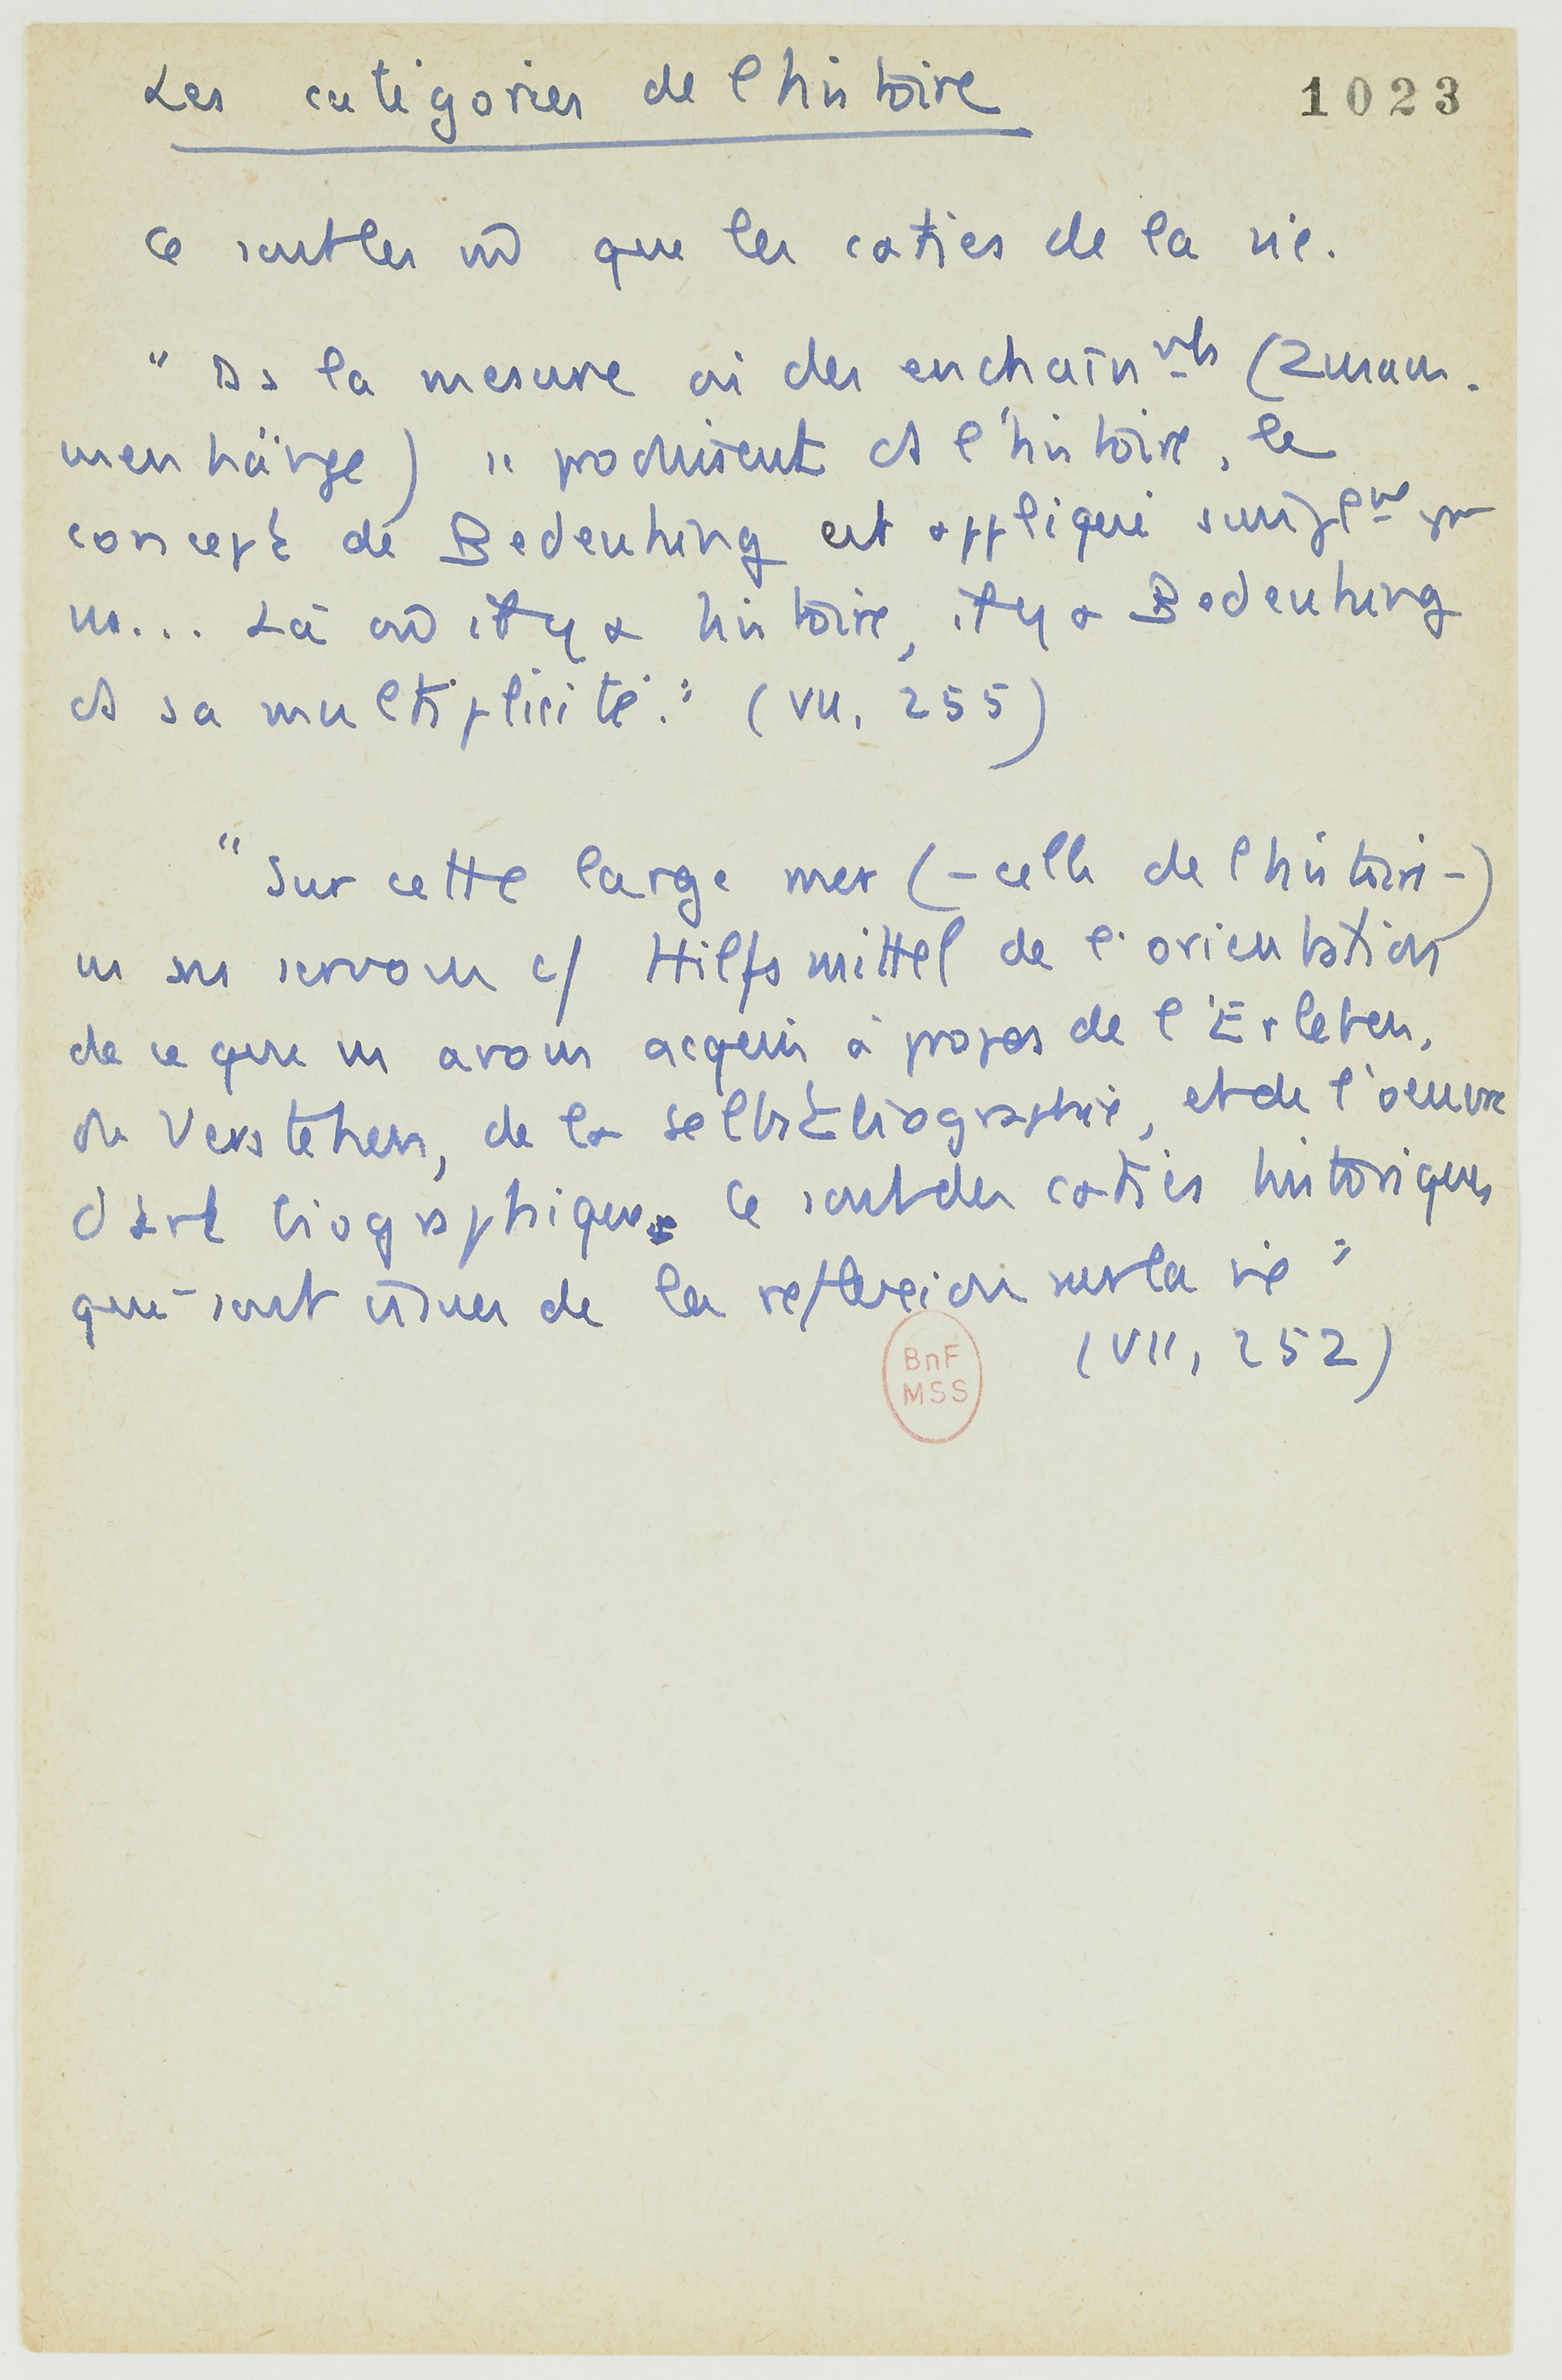 Les catégories de l'histoire
1023
Ce sont les m̄ que les caties de la vie.
" Ds la mesure où des enchaînmts (Zusam-
menhänge) se produisent ds l'histoire, le
concept de Bedeutung est appliqué
Là où il y a histoire, il y a Bedeutung
ds sa multiplicité." (VII, 255)
"Sur cette large mer (- celle de l'histoire -)
ns ns servons c/ Hilfsmittel de l'orientation
de ce que ns avons acquis à propos de l'Erleben,
du Verstehen, de la Selbstbiographie, et de l'oeuvre
d'art biographique. Ce sont des caties historiques
qui sont issues de la reflexion sur la vie"
(VII, 252)
BnF
MSS